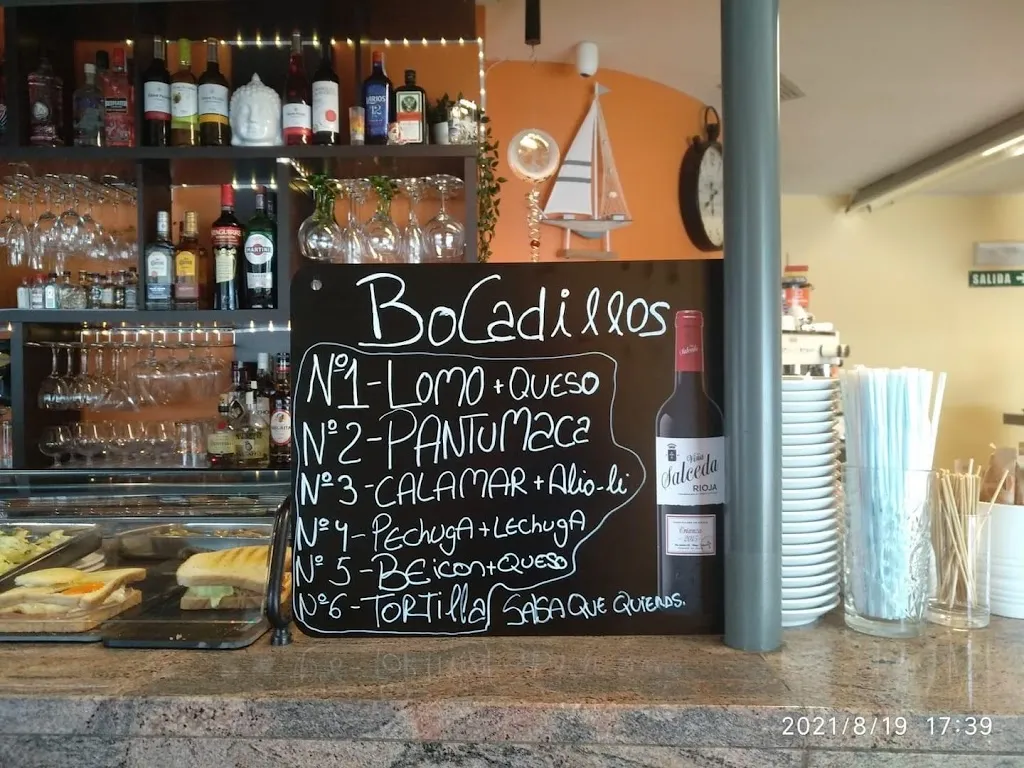 BoCadillos
Nº1-LOMO+QUESO
Nº2-PANTUMaca
Nº3-CALAMAR+Alio-li
Nº4-PechugA+LechugA
Nº5-BEicon+QUESO
Nº6-TORTILLA SALSA QUE QUIERAS.
Viña
Salceda
RIOJA
Crianza
MARTINI
SALIDA
2021/8/19 17:39